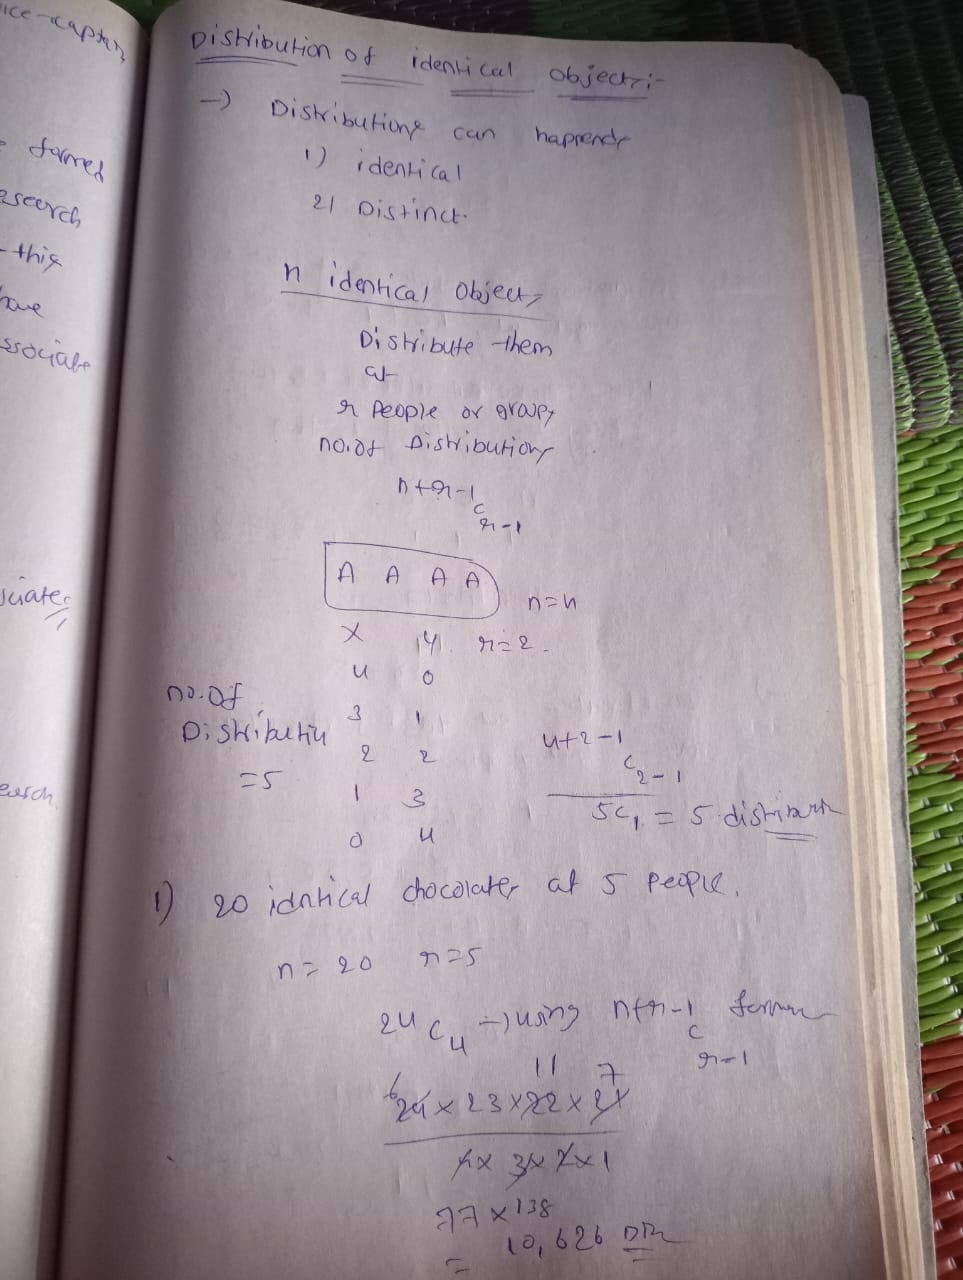 ice-captain
formed
esearch
- this
have
ssociate
sciates
earch
Distribution of identical objects:-
→ Distributions can happends
1) identical
2) Distinct.
n identical objects
Distribute them
at
r people or groups
no. of Distributions
n+r-1
c
r-1
A A A A
n=4
x y r=2.
4 0
3 1
2 2
1 3
0 4
no. of
Distributin
=5
4+2-1
c
2-1
5c1 = 5 distributi
1) 20 idntical chocolates at 5 people.
n = 20 r=5
24 c4 → using n+r-1 c r-1
6 11 7
24 x 23 x 22 x 21
4 x 3 x 2 x 1
77 x 138
= 10,626